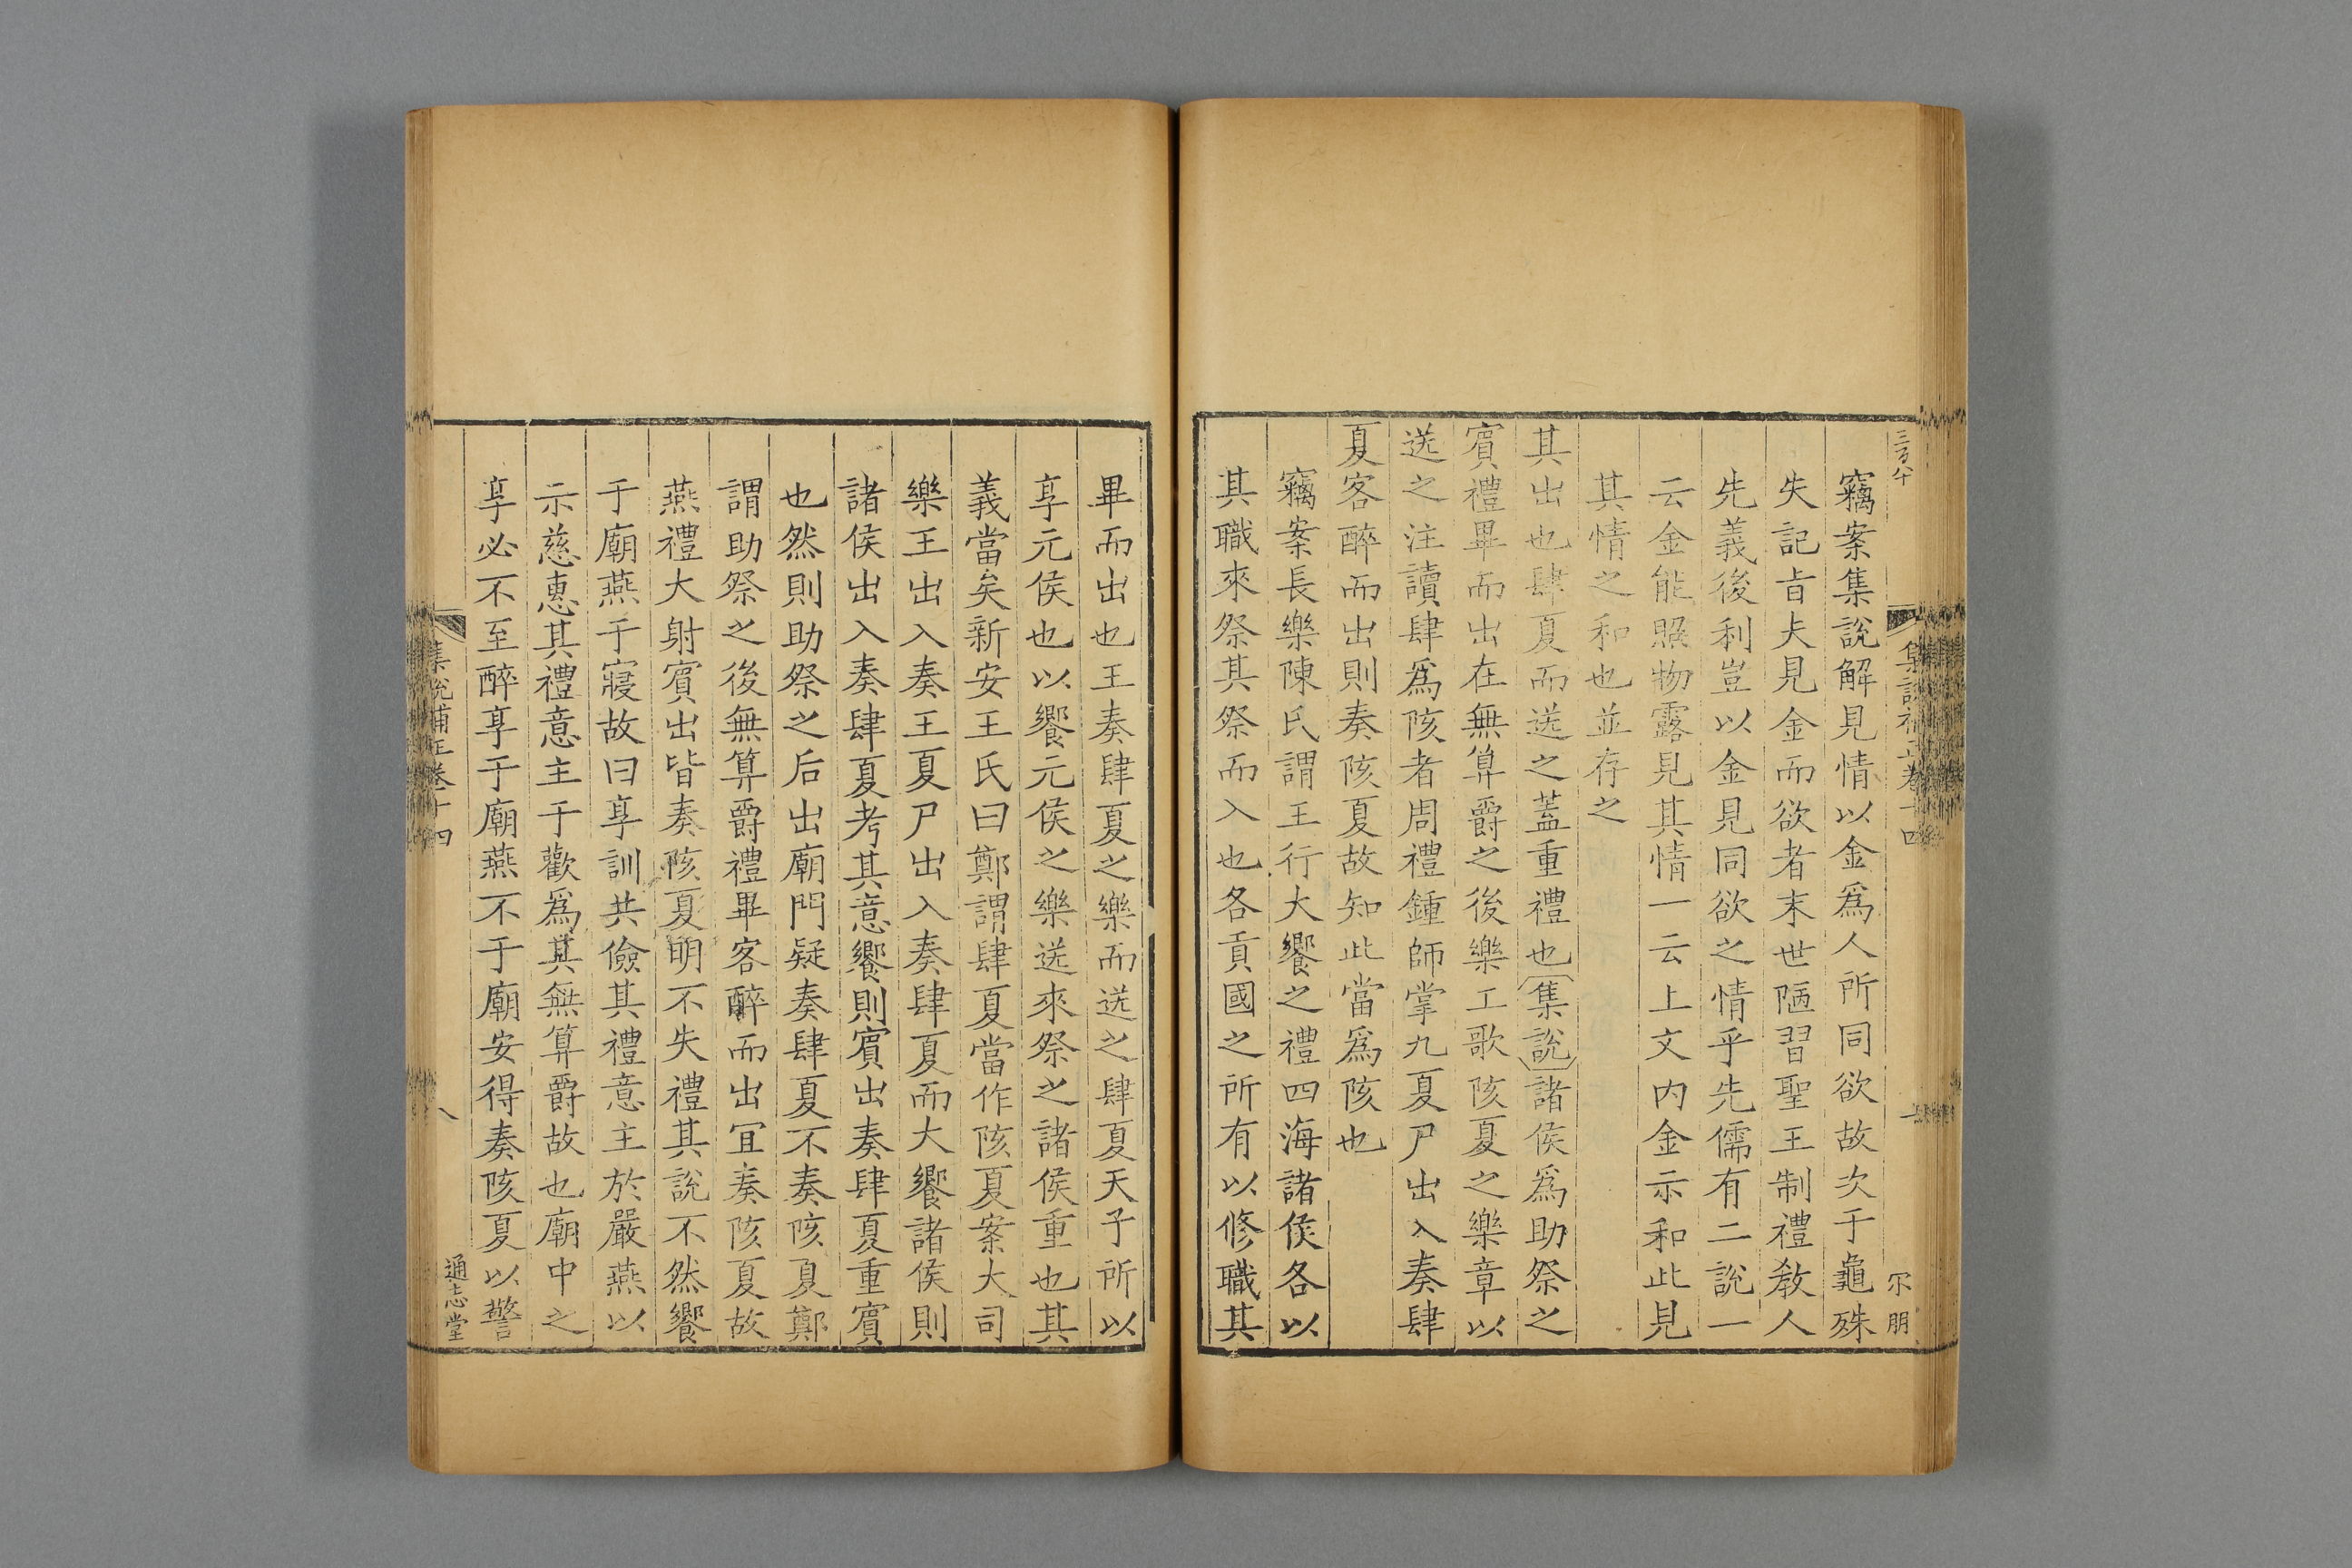 竊案集說解見情以金爲人所同欲故次于龜殊
失記旨夫見金而欲者末世陋習聖王制禮敎人
先義後利豈以金見同欲之情乎先儒有二說一
云金能照物露見其情一云上文内金示和此見
其情之和也並存之
其出也肆夏而送之蓋重禮也集說諸侯爲助祭之
賓禮畢而出在無算爵之後樂工歌陔夏之樂章以
送之注讀肆爲陔者周禮鍾師掌九夏尸出入奏肆
夏客醉而出則奏陔夏故知此當爲陔也
竊案長樂陳氏謂王行大饗之禮四海諸侯各以
其職來祭其祭而入也各貢國之所有以修職其
畢而出也王奏肆夏之樂而送之肆夏天子所以
享元侯也以饗元侯之樂送來祭之諸侯重也其
義當矣新安王氏曰鄭謂肆夏當作陔夏案大司
樂王出入奏王夏尸出入奏肆夏而大饗諸侯則
諸侯出入奏肆夏考其意饗則賓出奏肆夏重賓
也然則助祭之后出廟門疑奏肆夏不奏陔夏鄭
謂助祭之後無算爵禮畢客醉而出宜奏陔夏故
燕禮大射賓出皆奏陔夏明不失禮其說不然饗
于廟燕于寢故曰享訓共儉其禮意主於嚴燕以
示慈惠其禮意主于歡爲其無算爵故也廟中之
享必不至醉享于廟燕不于廟安得奏陔夏以警
集說補正卷十四
八
通志堂